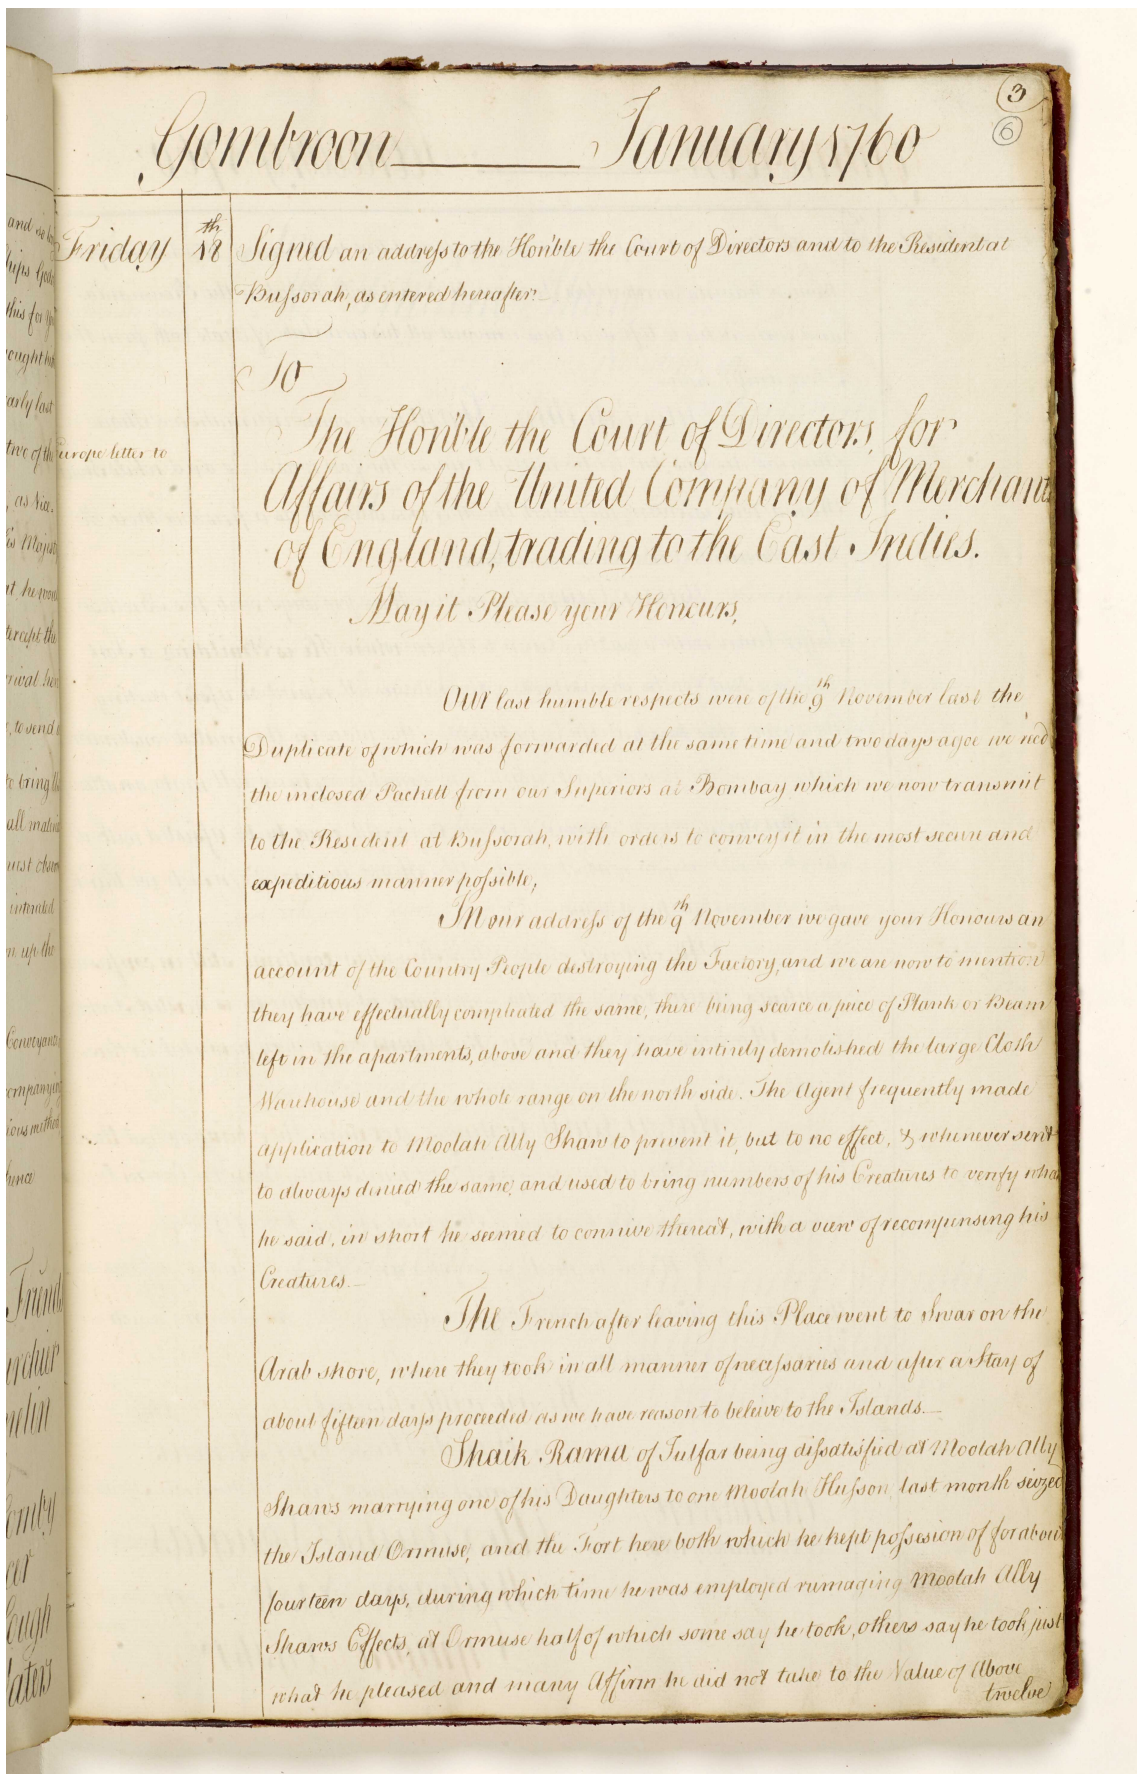 3
6
Gombroon January 1760
Friday 18th Signed an address to the Hon'ble the Court of Directors and to the Resident at
Bussorah, as entered hereafter.
To
The Hon'ble the Court of Directors, for
Europe letter to
Affairs of the United Company of Merchants
of England, trading to the East Indies.
May it Please your Honours,
Our last humble respects were of the 9th November last the
Duplicate of which was forwarded at the same time and two days agoe we rec'd
the inclosed Packett from our Superiors at Bombay which we now transmit
to the Resident at Bussorah, with orders to convey it in the most secure and
expeditious manner possible,
In our address of the 9th November we gave your Honours an
account of the Country People destroying the Factory, and we are now to mention
they have effectually compleated the same, there being scarce a piece of Plank or Beam
left in the apartments, above and they have intirely demolished the large Cloth
Warehouse and the whole range on the north side. The Agent frequently made
application to Moolah Ally Shaw to prevent it, but to no effect, & whenever sent
to always denied the same, and used to bring numbers of his Creatures to verify what
he said, in short he seemed to connive thereat, with a view of recompensing his
Creatures.
The French after leaving this Place went to Swar on the
Arab shore, where they took in all manner of necessaries and after a Stay of
about fifteen days proceeded as we have reason to beleive to the Islands.
Shaik Rama of Julfar being dissatisfied at Moolah Ally
Shaws marrying one of his Daughters to one Moolah Husson, last month seized
the Island Ormuse, and the Fort here both which he kept possesion of for about
fourteen days, during which time he was employed rumaging Moolah Ally
Shaws Effects, at Ormuse half of which some say he took, others say he took just
what he pleased and many Affirm he did not take to the Value of Above
twelve